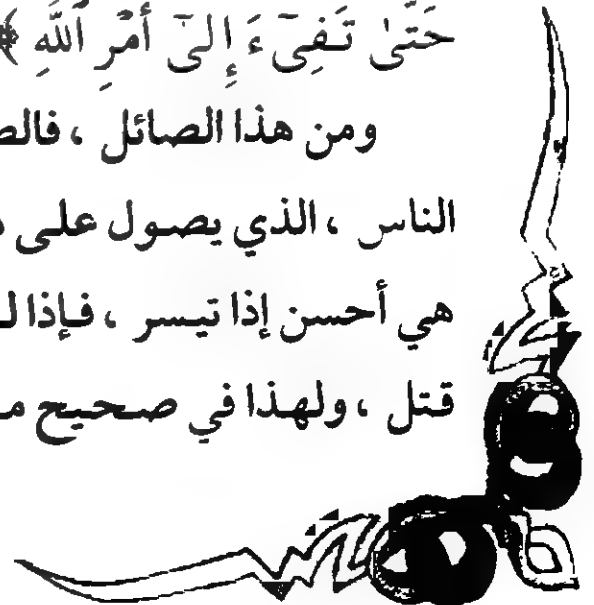 حَتَّىٰ تَفِيٓءَ إِلَىٰٓ أَمْرِ ٱللَّهِ ﴾
ومن هذا الصائل ، فالص
الناس ، الذي يصول على
هي أحسن إذا تيسر ، فإذا لـ
قتل ، ولهذا في صحيح مـ